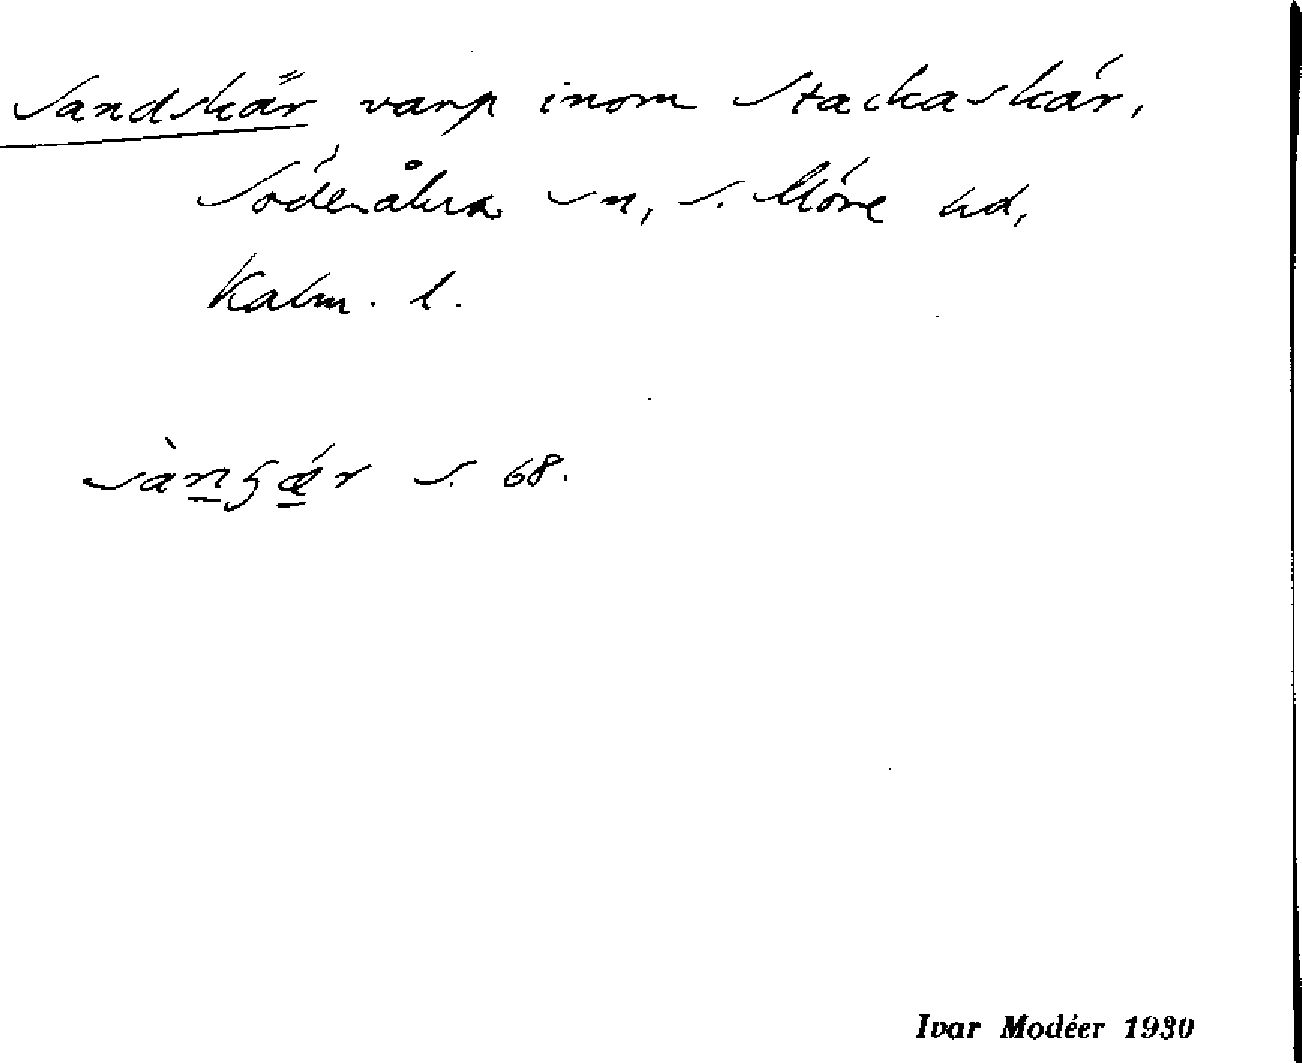 Sandskär varp inom Stackaskär,
Söderåkra sn, S. Möre hd,
Kalm. l.
sànʒǽr s. 68.
Ivar Modéer 1930